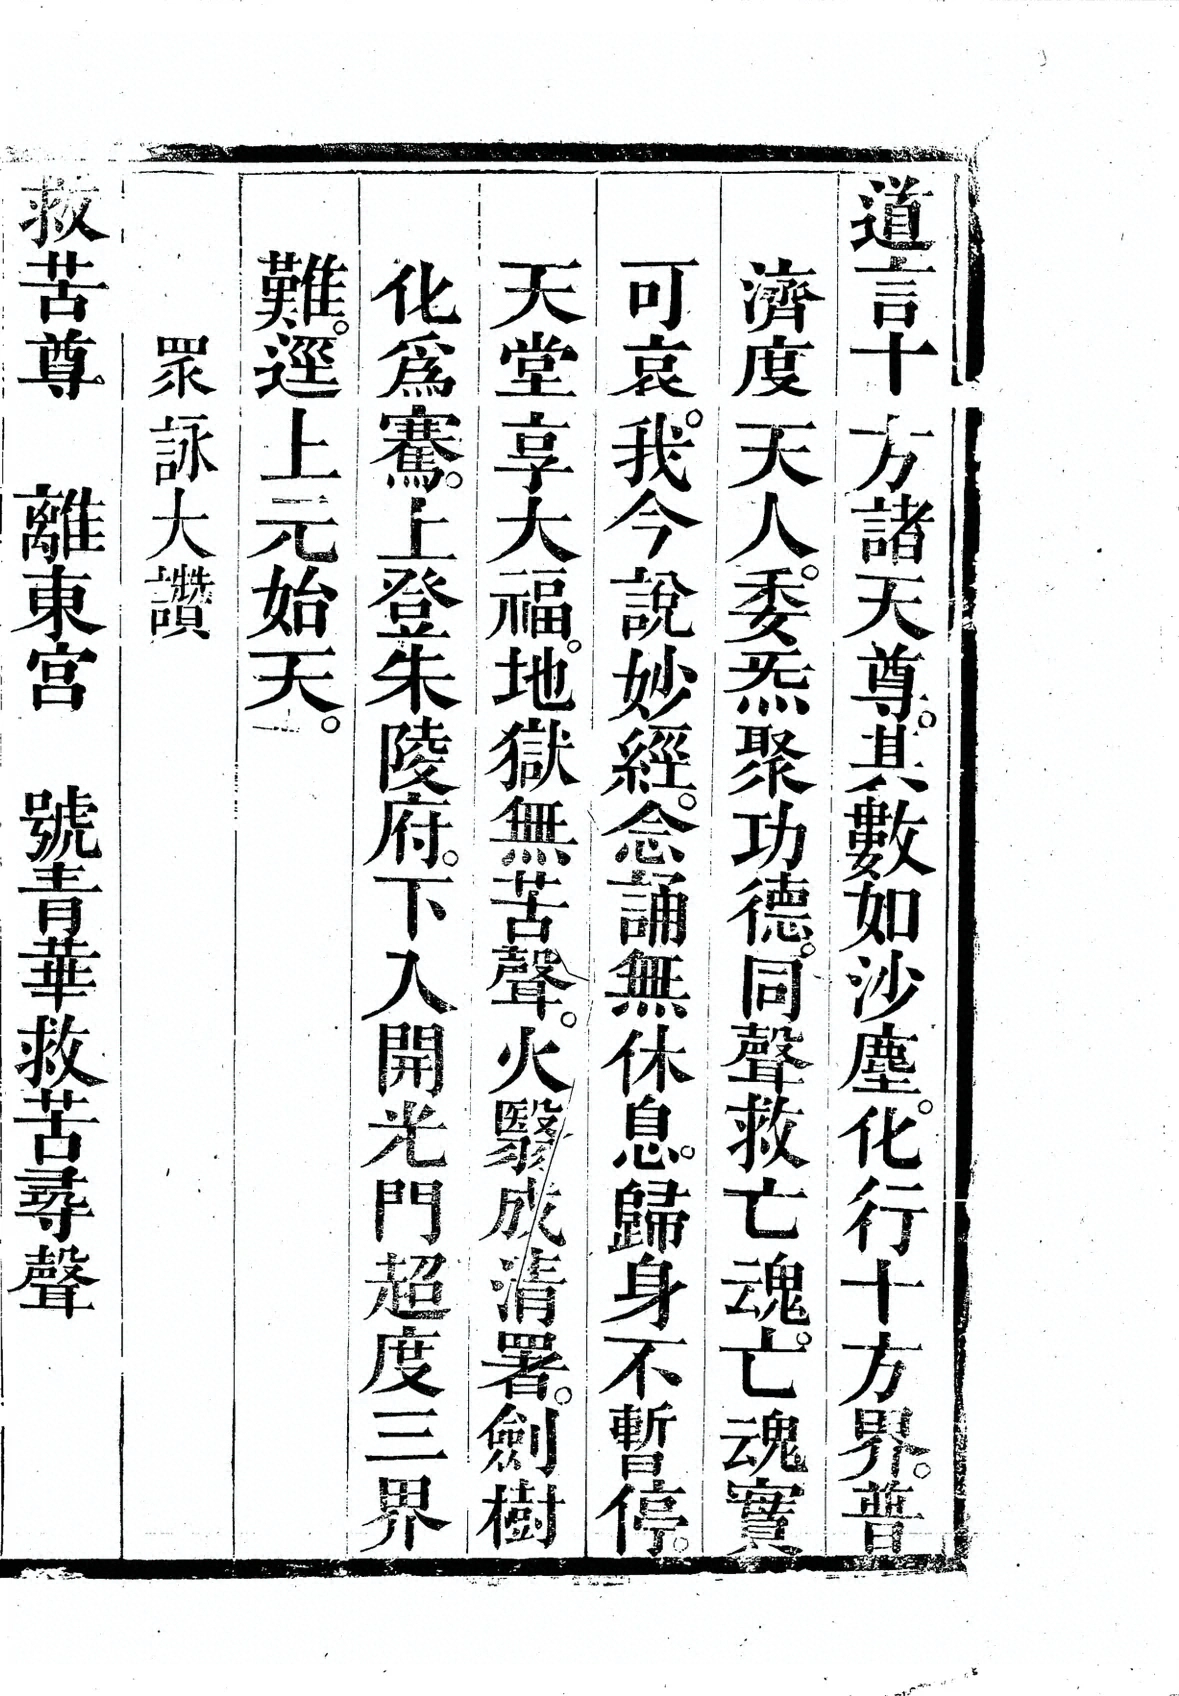 道言十方諸天尊。其數如沙塵。化行十方界。普
濟度天人。委炁聚功德。同聲救亡魂。亡魂實
可哀。我今說妙經。念誦無休息。歸身不暫停。
天堂享大福。地獄無苦聲。火翳成清署。劍樹
化爲騫。上登朱陵府。下入開光門超度三界
難。逕上元始天。
眾詠大讚
救苦尊　離東宮　號青華救苦尋聲